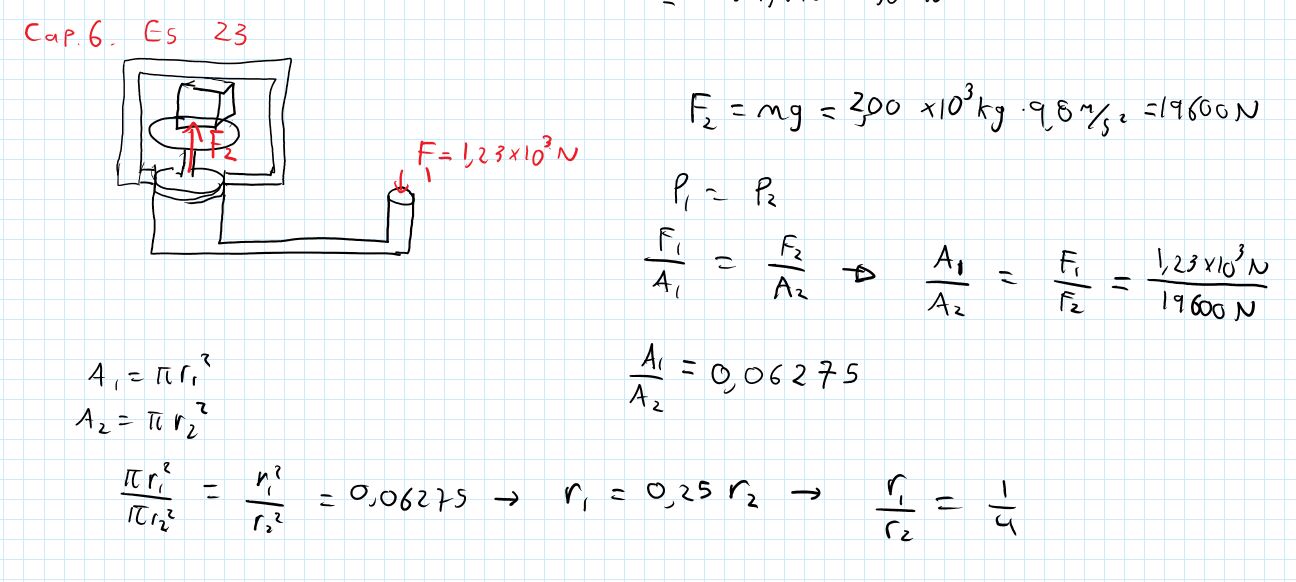 Cap. 6. Es 23
F₂
F₁ = 1,23×10³ N
F₂ = mg = 2,00 ×10³ kg · 9,8 m/s² = 19600 N
P₁ = P₂
F₁/A₁ = F₂/A₂ → A₁/A₂ = F₁/F₂ = 1,23×10³ N/19600 N
A₁/A₂ = 0,06275
A₁ = πr₁²
A₂ = πr₂²
πr₁²/πr₂² = r₁²/r₂² = 0,06275 → r₁ = 0,25 r₂ → r₁/r₂ = 1/4